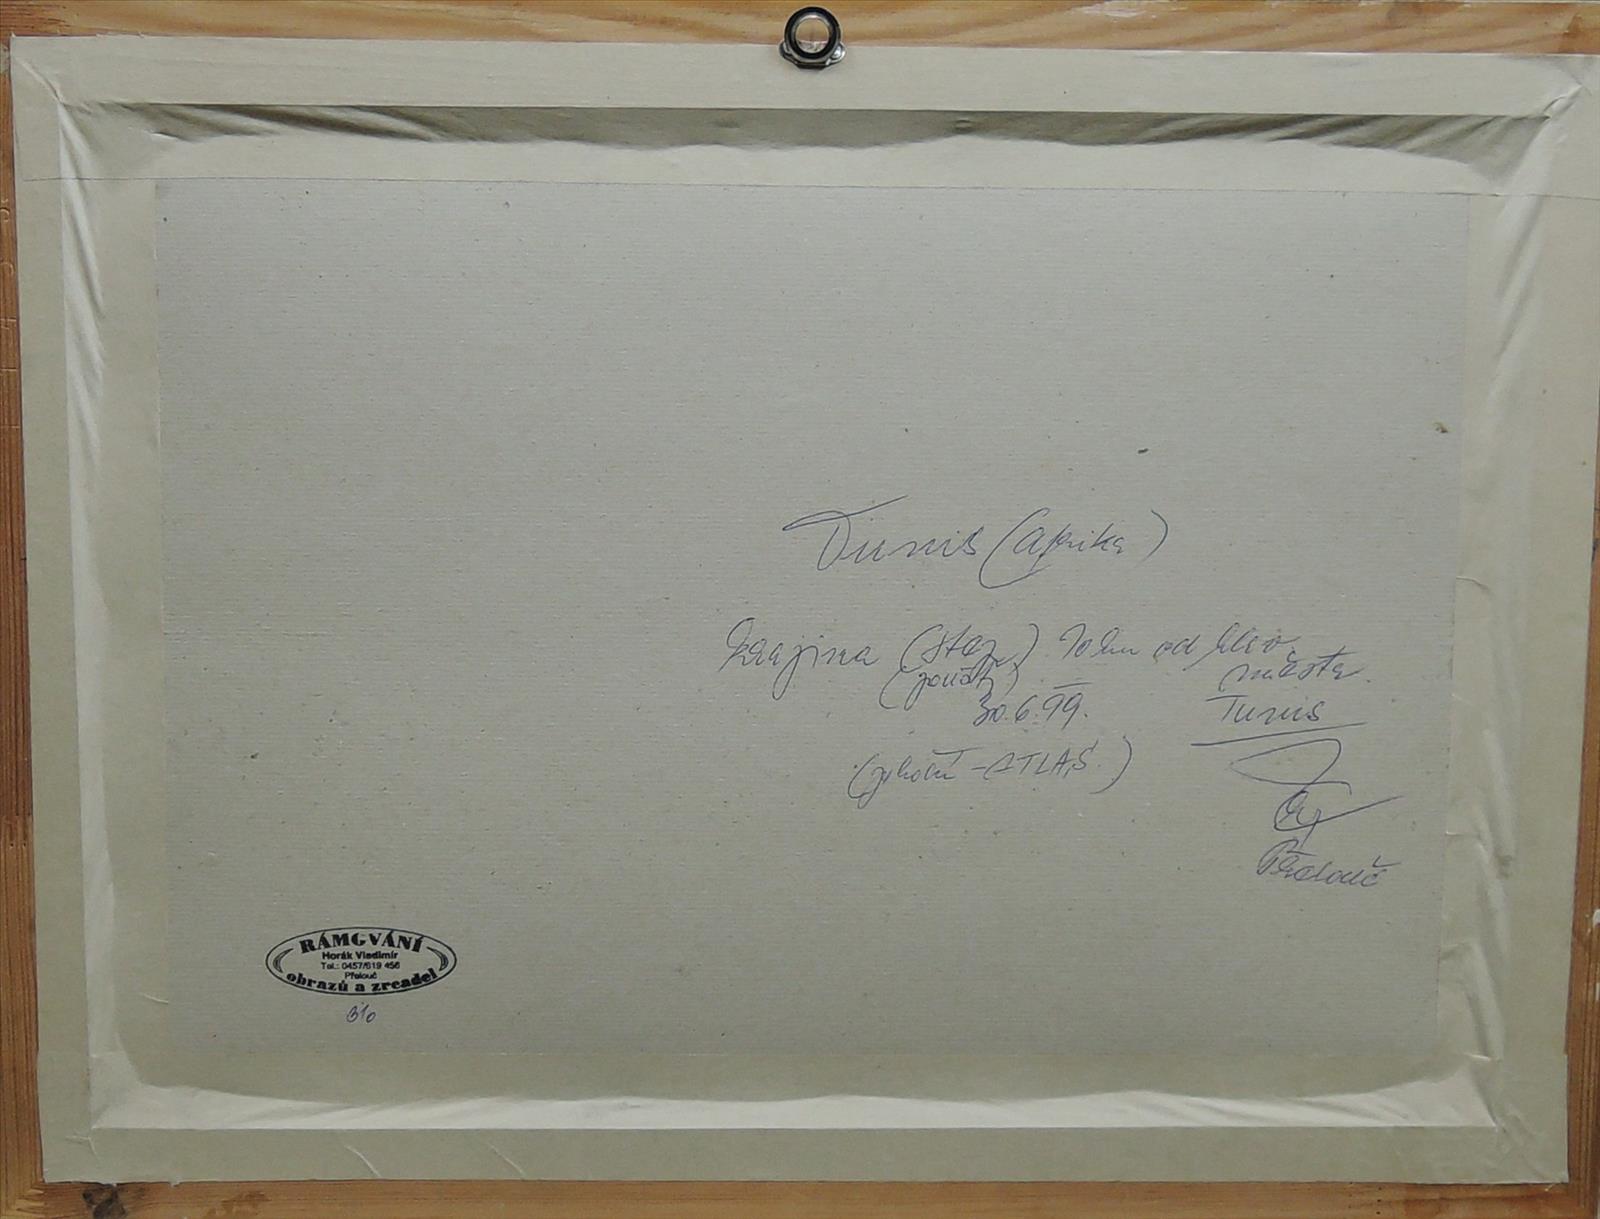 Tunis (Afrika)
krajina (step) 70 km od hlav.
(poušť) města
30.6.99. Tunis
(pohoří - ATLAS.)
Přelouč
RÁMOVÁNÍ
Horák Vladimír
Tel.: 0457/619 456
Přelouč
obrazů a zrcadel
310